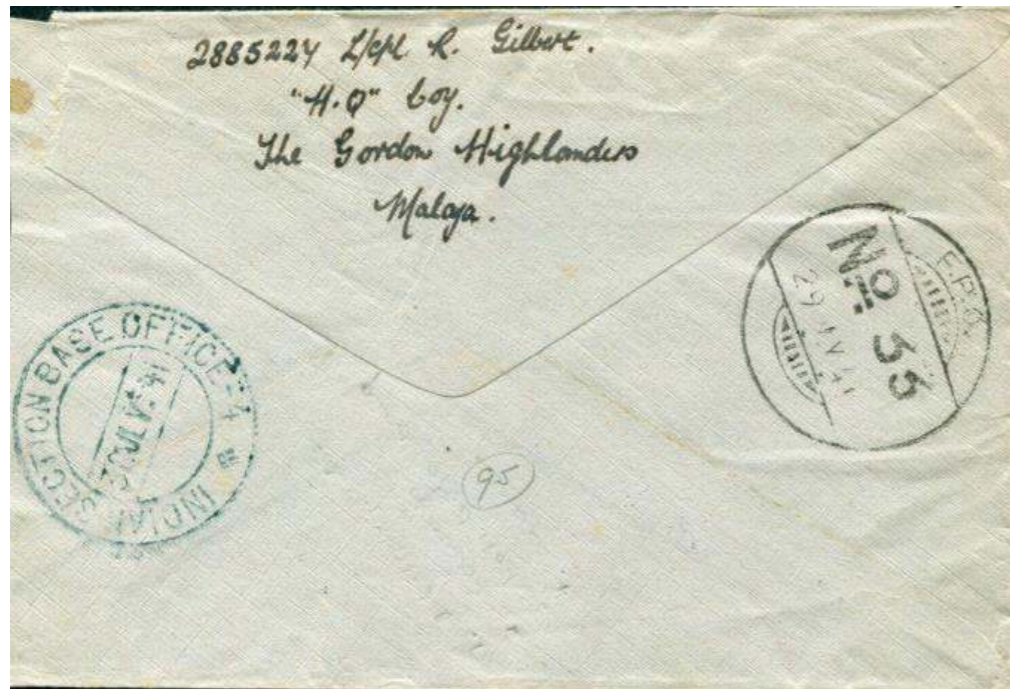 2885224 L/cpl R. Gilbert.
"H.Q" Coy.
The Gordon Highlanders
Malaya.
F.P.O.
No 35
29 IV 41
INDIAN SECTION BASE OFFICE
95